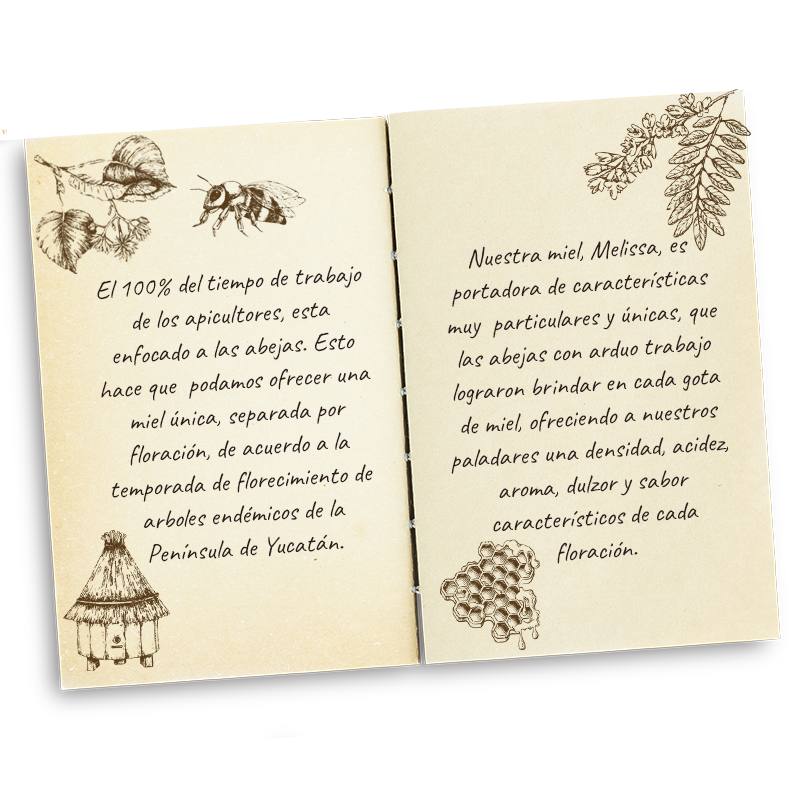 El 100% del tiempo de trabajo
de los apicultores, esta
enfocado a las abejas. Esto
hace que podamos ofrecer una
miel única, separada por
floración, de acuerdo a la
temporada de florecimiento de
arboles endémicos de la
Península de Yucatán.
Nuestra miel, Melissa, es
portadora de características
muy particulares y únicas, que
las abejas con arduo trabajo
lograron brindar en cada gota
de miel, ofreciendo a nuestros
paladares una densidad, acidez,
aroma, dulzor y sabor
característicos de cada
floración.